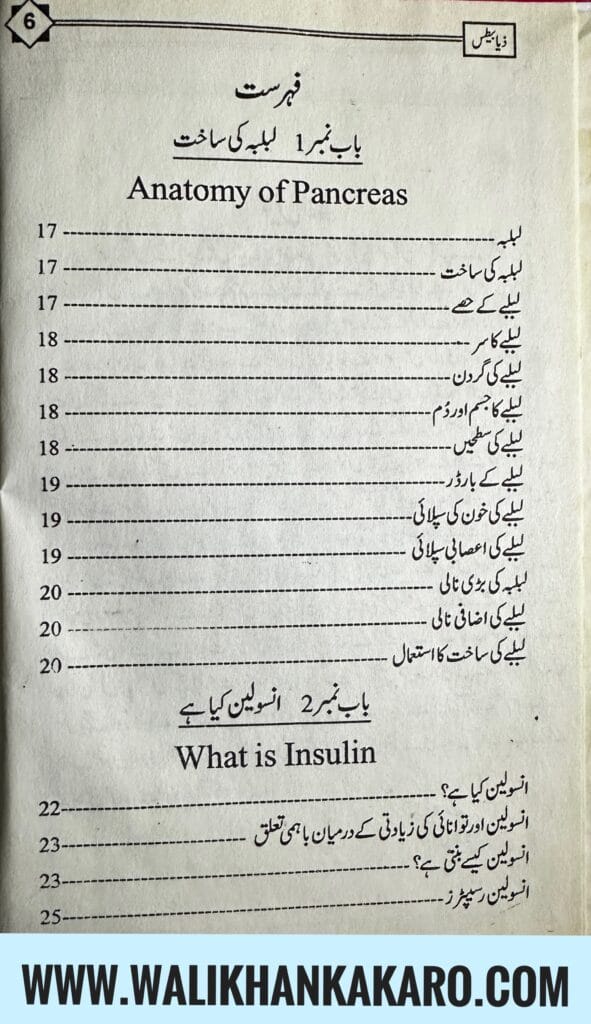 6 ذیابیطس
فہرست
باب نمبر 1 لبلبہ کی ساخت
Anatomy of Pancreas
لبلبہ ---------- 17
لبلبہ کی ساخت ---------- 17
لبلبے کے حصے ---------- 17
لبلبے کا سر ---------- 18
لبلبے کی گردن ---------- 18
لبلبے کا جسم اور دُم ---------- 18
لبلبے کی سطحیں ---------- 18
لبلبے کے بارڈر ---------- 19
لبلبے کی خون کی سپلائی ---------- 19
لبلبے کی اعصابی سپلائی ---------- 19
لبلبہ کی بڑی نالی ---------- 20
لبلبے کی اضافی نالی ---------- 20
لبلبے کی ساخت کا استعمال ---------- 20
باب نمبر 2 انسولین کیا ہے
What is Insulin
انسولین کیا ہے؟ ---------- 22
انسولین اور توانائی کی زیادتی کے درمیان باہمی تعلق ---------- 23
انسولین کیسے بنتی ہے؟ ---------- 23
انسولین رسیپٹرز ---------- 25
WWW.WALIKHANKAKARO.COM